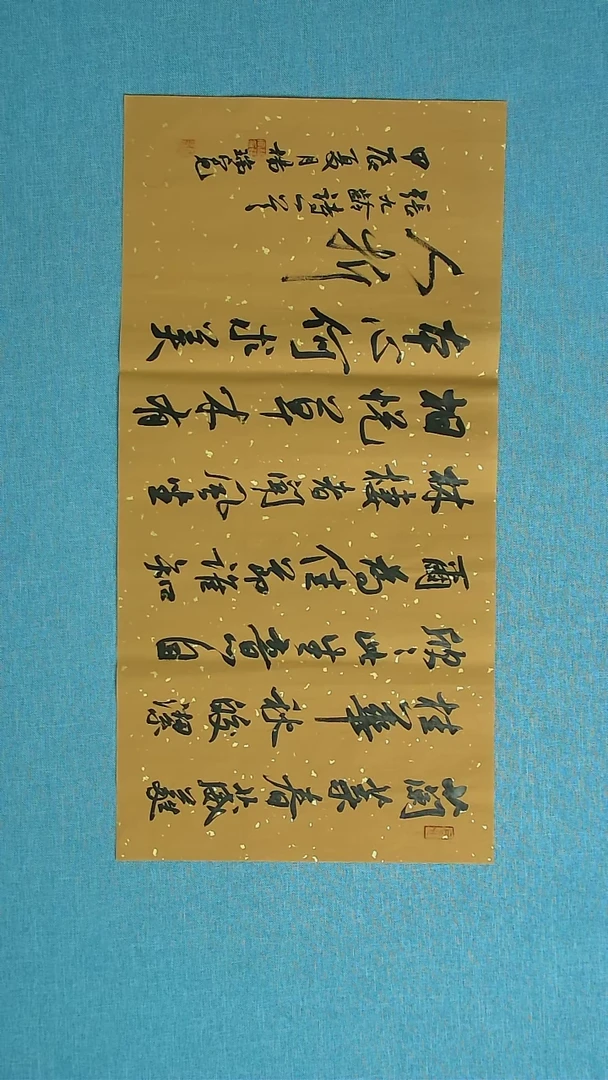 蘭葉春葳蕤
桂華秋皎潔
欣〻此生意自
爾為佳節誰知
林棲者聞風坐
相悦草木有
本心何求美
人折
張九齡詩一首
甲辰夏月楊